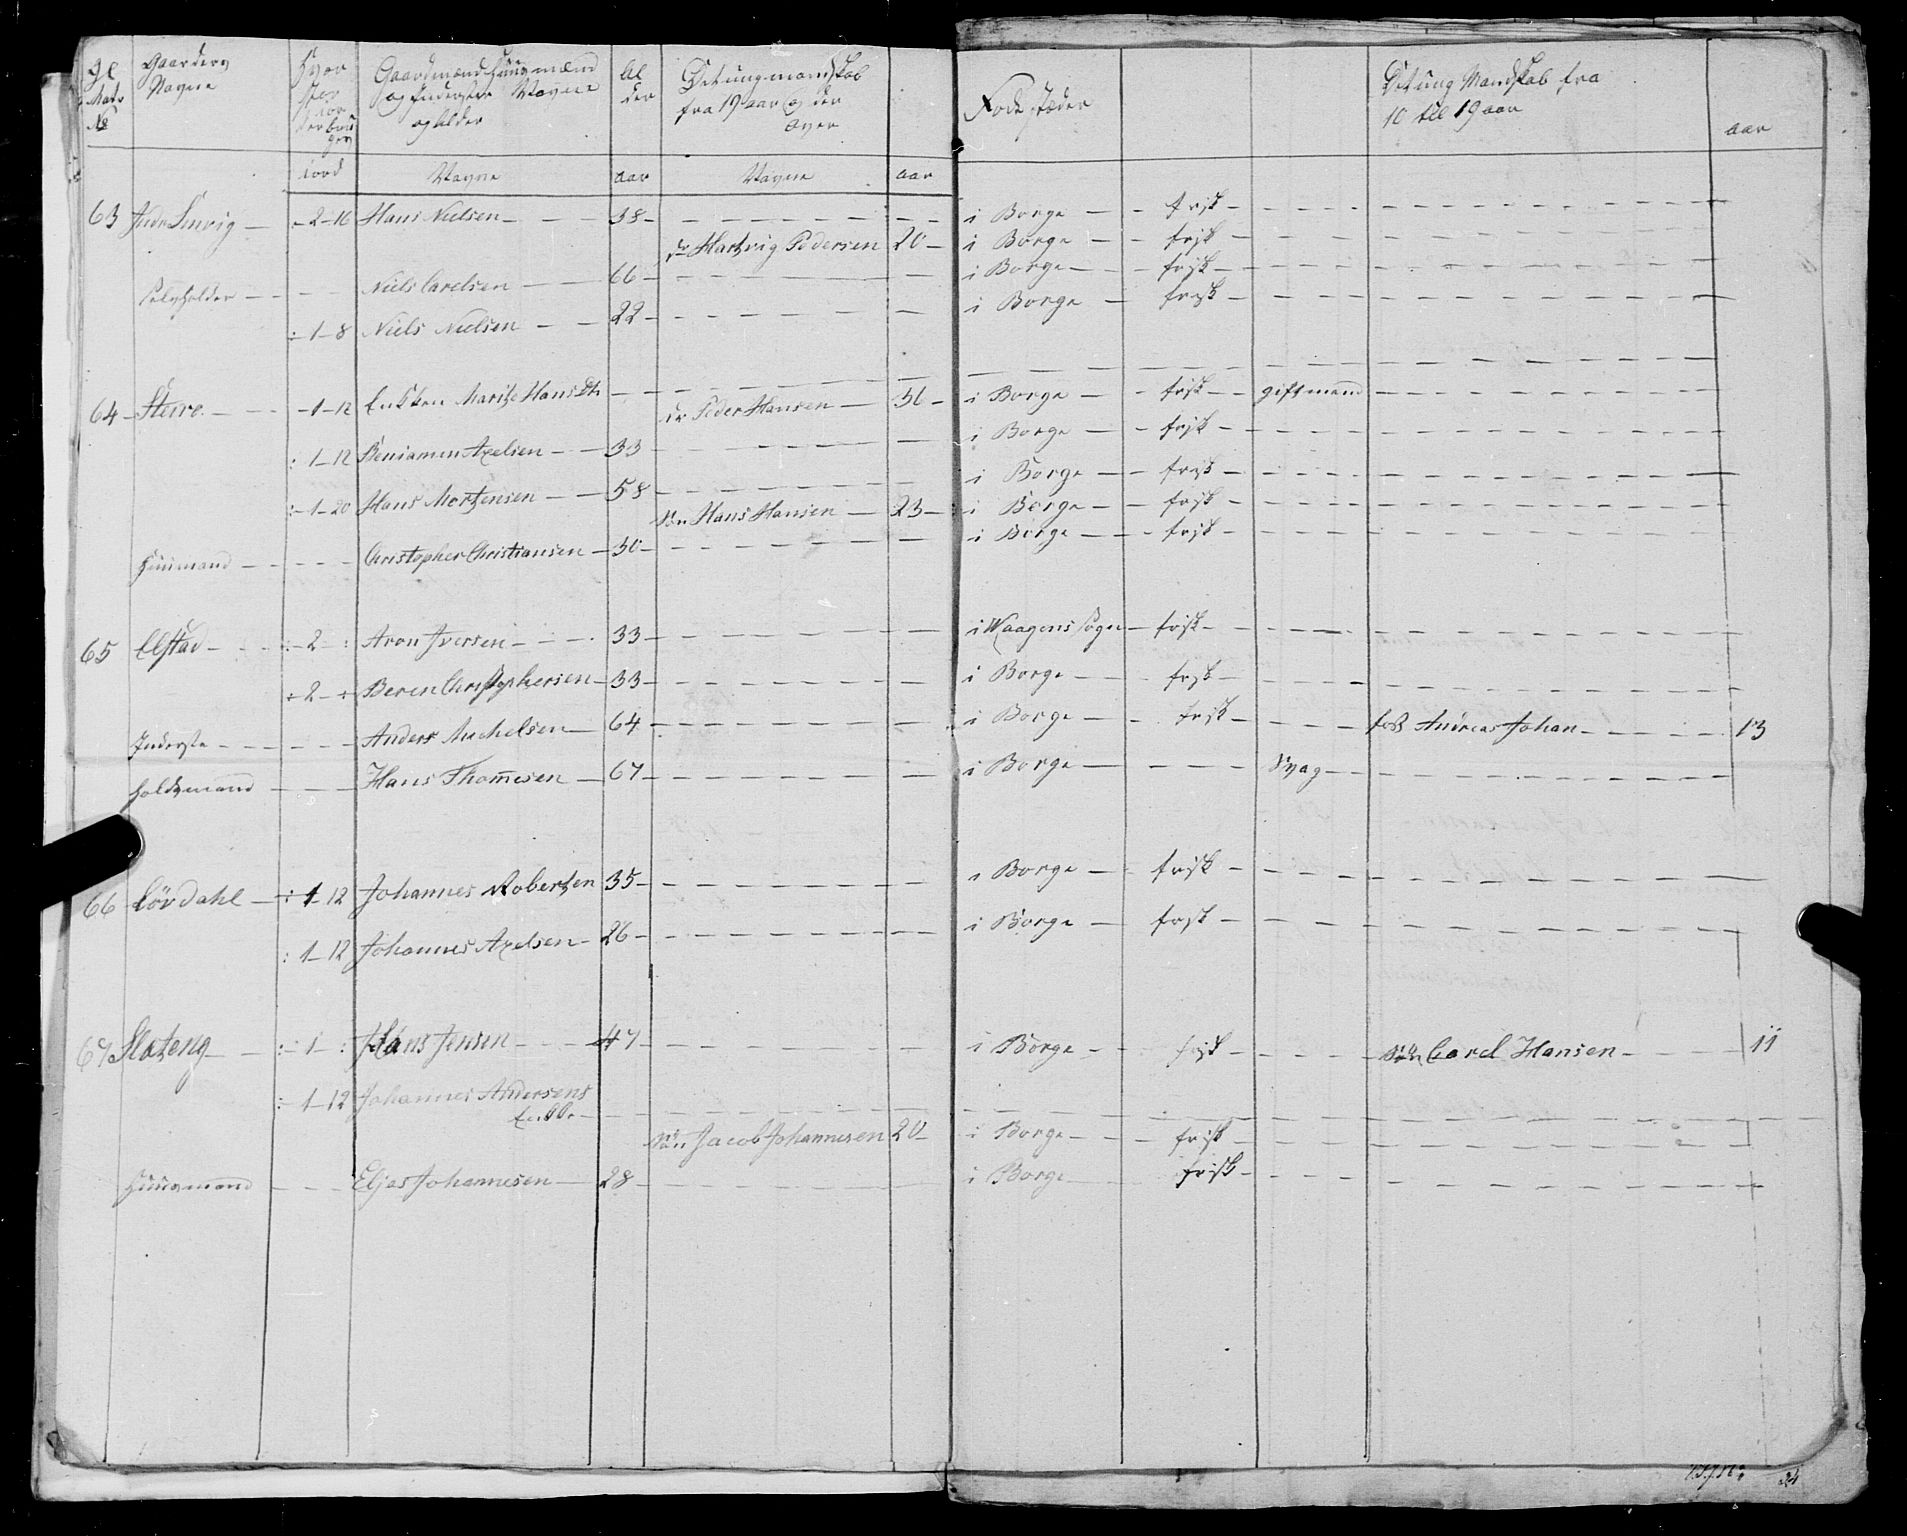 Matr No
Gaardens Navne
Gaardmænd Huusmænd og Inderster Navne og Alder
Al der
Det ungmandskab fra 19 aar og der over
Føde stæder
Det ung Mandskab fra 10 til 19 aar
aar
Navne aar Navne aar
63 - 2-16 Hans Nielsen 38 i Borge frisk
Hartvig Pedersen 20 i Borge frisk
Niels Carelsen 66 i Borge frisk
1-8 Niels Nielsen 22 i Borge frisk
64 1-12 Enkken Maritze Hans Dtr
Peder Hansen 36 i Borge frisk giftmand
1-12 Beniamin Axelsen 33 i Borge frisk
1-20 Hans Mortensen 58 i Borge frisk
Søn Hans Hansen 23 i Borge frisk
Huusmand Christopher Christiansen 30 i Borge frisk
65 2 Aron Iversen 33 i Waagens Sogn frisk
2 Beren Christophersen 33 i Borge frisk
Inderste Anders Michelsen 64 i Borge frisk Andreas Johan 13
Hans Thommesen 67 i Borge Svag
66 Lövdahl 1-12 Johannes Robertzen 35 i Borge frisk
1-12 Johannes Axelsen 26 i Borge frisk
67 Slateng 1 Hans Jensen 47 i Borge frisk Søn Carel Hansen 11
1-12 Johannes Andersens
Søn Jacob Johannesen 20 i Borge frisk
Huusmand Eljas Johannesen 28 i Borge frisk
24